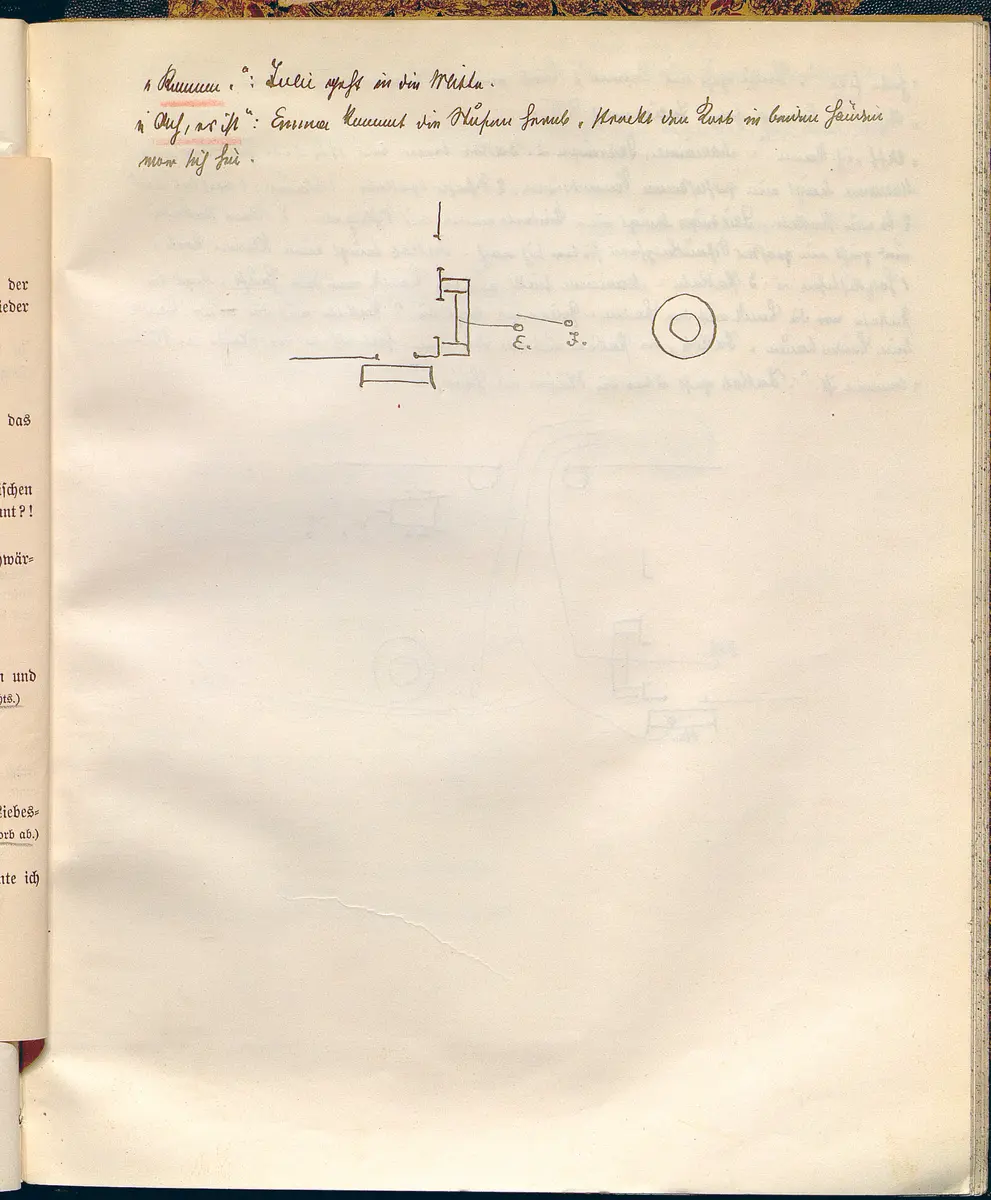 „Kommen.“: Julie geht in die Mitte.
„Ach, es ist“: Emma kommt die Stufen herab, streckt den Korb in beiden Händen
vor sich hin.
E. J.
der
ieder
das
ischen
nt?!
wär=
n und
ts.)
Liebes=
orb ab.)
nte ich